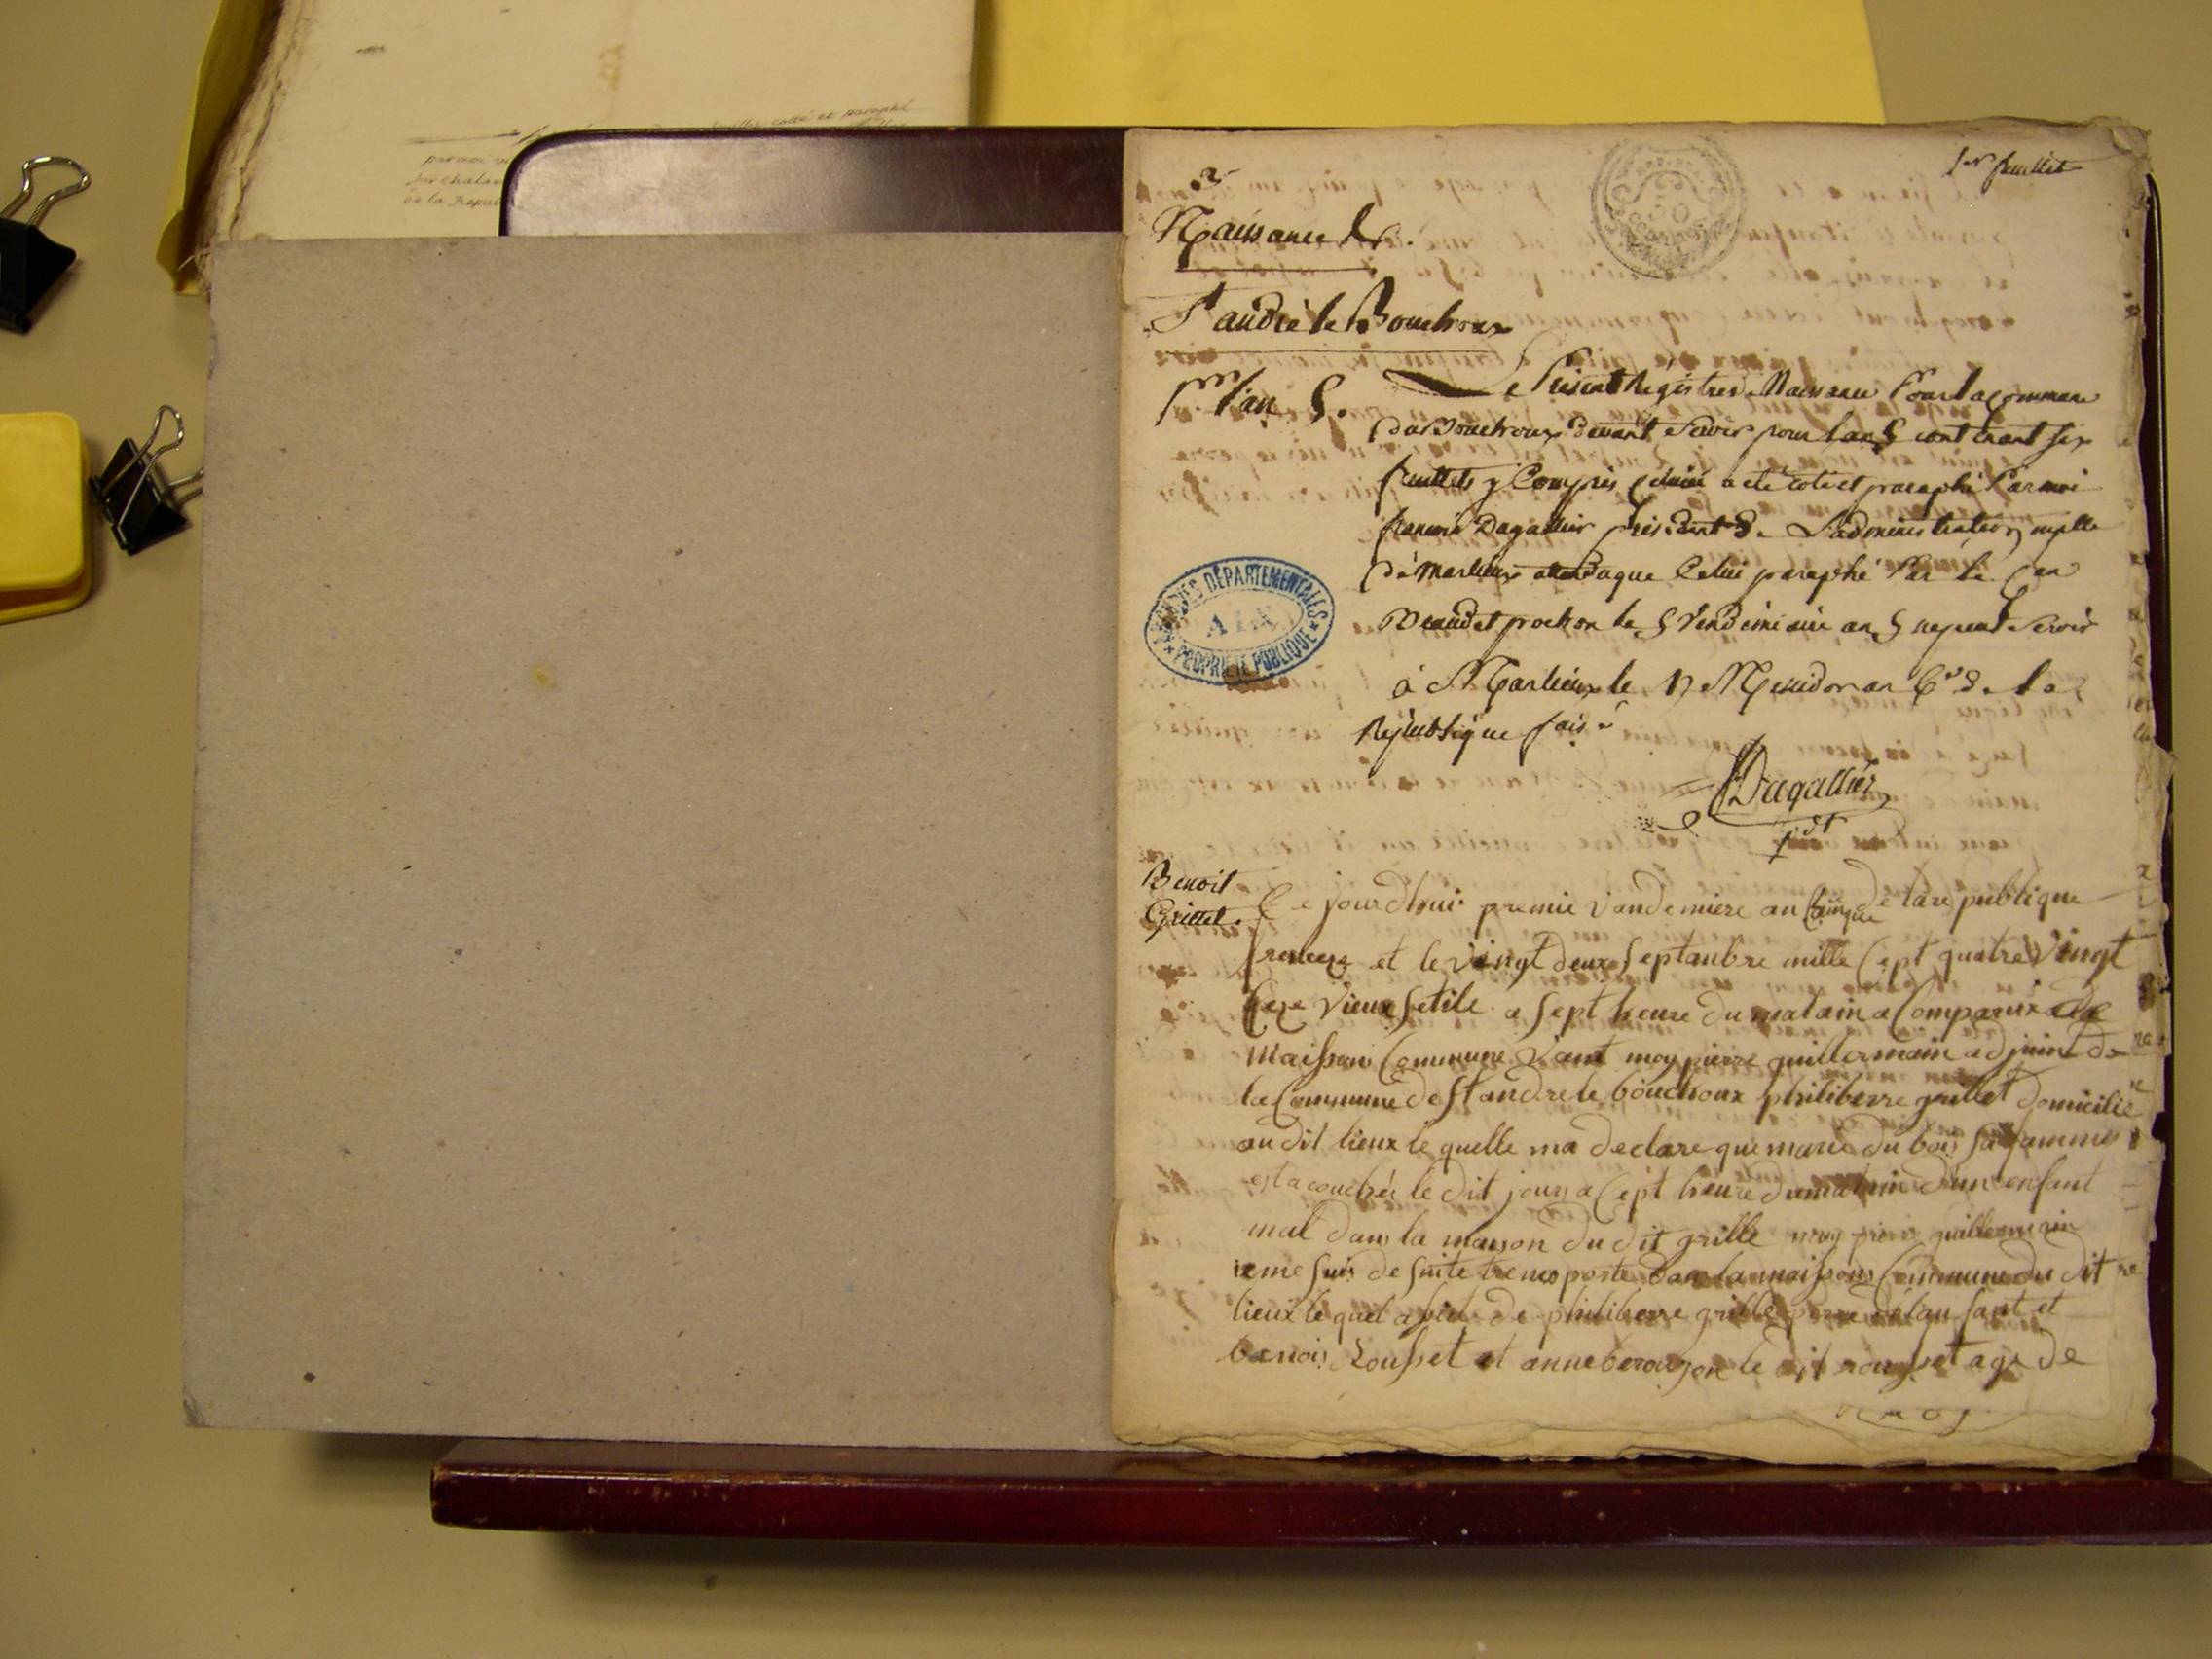 cotté et paraphé
par moi
de la Repub
1er feuillet
Naissance
St andré le Bouchoux
pour l'an 5.
Le présent Régistre de Naissance Pour la commune
du Bouchoux devant servir pour l'an 5 contenant six
feuillets y Compris celui ci a été coté et paraphé Par moi
francois Dagallier président de L'administration mplle
de Marlieux attendu que Celui paraphé Par le Cen
prochon le 5 Vendémiaire an 5 ne peut servir
à Marlieux le Messidor an de la
République fais e
Dagallier
pdt
Benoit
Grillet.
Ce jourdhui premie vandemiere an Cainque de lare publique
francęz et le vingt deux Septanbre mille Cept quatre Vingt
Ceze vieux Setile a sept heure du matain a Comparux a la
maisson Commune Vant moy pierre guillermain adjoint de
la Commune de St andre le bouchoux philiberre grillet domicilié
au dit lieux le quelle ma declare que marie du bois sa famme
est acouchée le dit jour a Cept heure du matain d'un enfant
mal dans la maison du dit grille moy pierre guillermain
ie me suis de suite transporte dans la maisson Commune du dit
lieux le quel de philiberre grille perre de lan fant et
benois Rousset et anne le dit rousset age de
ARCHIVES DÉPARTEMENTALES
AIN
PROPRIÉTÉ PUBLIQUE